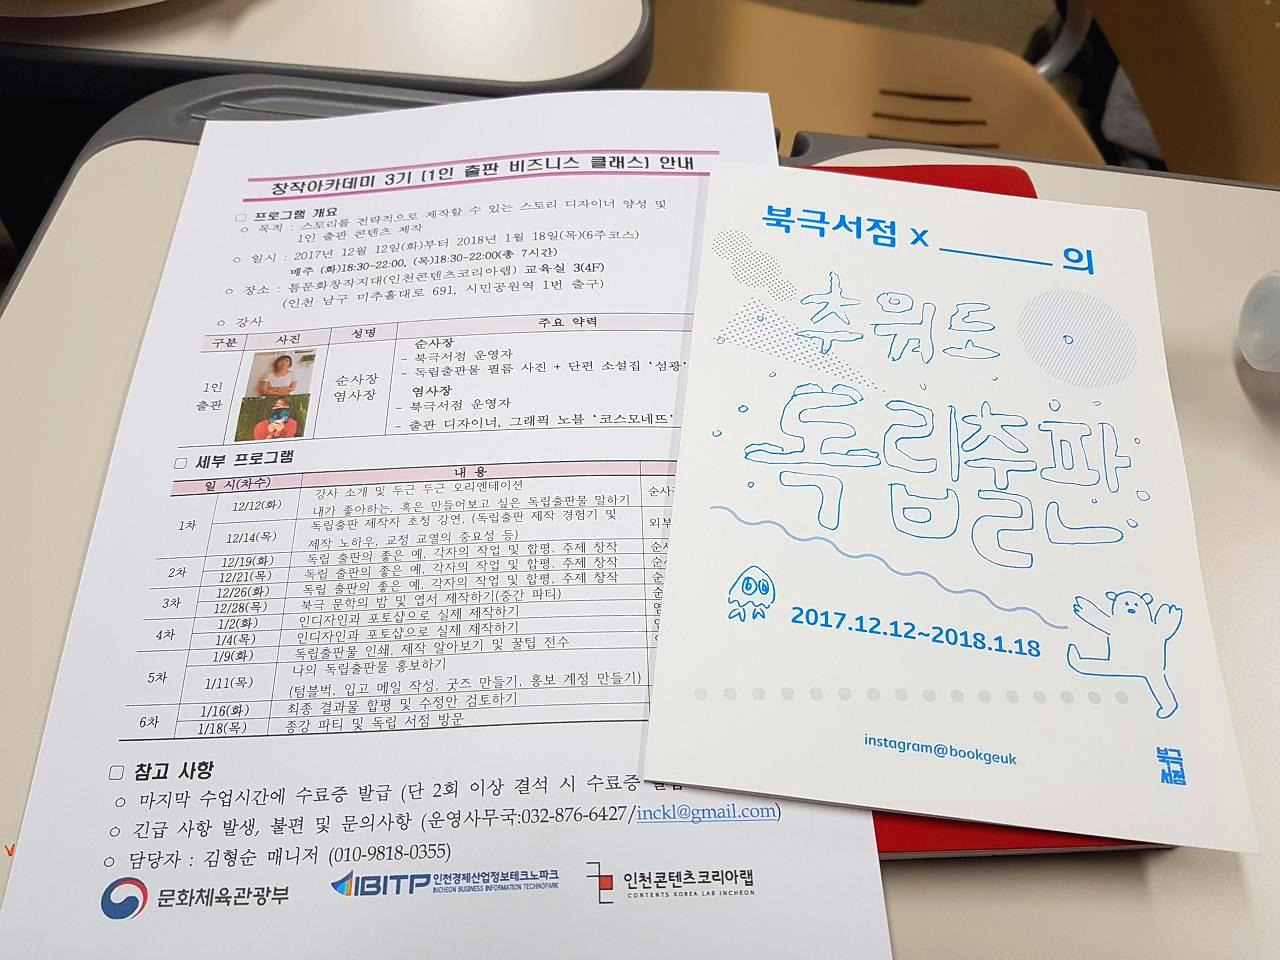 창작아카데미 3기 [1인 출판 비즈니스 클래스] 안내
□ 프로그램 개요
○ 목적 : 스토리를 전략적으로 제작할 수 있는 스토리 디자이너 양성 및
1인 출판 콘텐츠 제작
○ 일시 : 2017년 12월 12일(화)부터 2018년 1월 18일(목)(6주코스)
매주 (화)18:30-22:00, (목)18:30-22:00(총 7시간)
○ 장소 : 틈문화창작지대(인천콘텐츠코리아랩) 교육실 3(4F)
(인천 남구 미추홀대로 691, 시민공원역 1번 출구)
○ 강사
구분 사진 성명 주요 약력
1인 출판
순사장
염사장
순사장
- 북극서점 운영자
- 독립출판물 필름 사진 + 단편 소설집 '섬광'
염사장
- 북극서점 운영자
- 출판 디자이너, 그래픽 노블 '코스모네프'
□ 세부 프로그램
일 시(차수) 내 용
1차 12/12(화) 강사 소개 및 두근 두근 오리엔테이션
내가 좋아하는, 혹은 만들어보고 싶은 독립출판물 말하기 순사
12/14(목) 독립출판 제작자 초청 강연, (독립출판 제작 경험기 및
제작 노하우, 교정 교열의 중요성 등) 외부
2차 12/19(화) 독립 출판의 좋은 예, 각자의 작업 및 합평, 주제 창작 순사
12/21(목) 독립 출판의 좋은 예, 각자의 작업 및 합평, 주제 창작 순
3차 12/26(화) 독립 출판의 좋은 예, 각자의 작업 및 합평, 주제 창작 순
12/28(목) 북극 문학의 밤 및 엽서 제작하기(중간 파티) 순
4차 1/2(화) 인디자인과 포토샵으로 실제 제작하기
1/4(목) 인디자인과 포토샵으로 실제 제작하기
5차 1/9(화) 독립출판물 인쇄, 제작 알아보기 및 꿀팁 전수
1/11(목) 나의 독립출판물 홍보하기
(텀블벅, 입고 메일 작성, 굿즈 만들기, 홍보 계정 만들기)
6차 1/16(화) 최종 결과물 합평 및 수정안 검토하기
1/18(목) 종강 파티 및 독립 서점 방문
□ 참고 사항
○ 마지막 수업시간에 수료증 발급 (단 2회 이상 결석 시 수료증
○ 긴급 사항 발생, 불편 및 문의사항 (운영사무국:032-876-6427/inckl@gmail.com)
○ 담당자 : 김형순 매니저 (010-9818-0355)
문화체육관광부
IBITP 인천경제산업정보테크노파크
INCHEON BUSINESS INFORMATION TECHNOPARK
인천콘텐츠코리아랩
CONTENTS KOREA LAB INCHEON
북극서점 X ______ 의
추워도
독립출판
2017.12.12~2018.1.18
instagram@bookgeuk
북극
서점